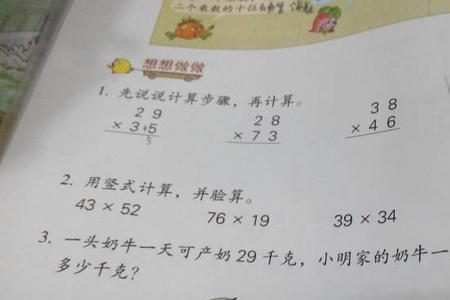 二个乘数的十位
想想做做
1. 先说说计算步骤，再计算。
2 9
× 3 5
5
2 8
× 7 3
3 8
× 4 6
2. 用竖式计算，并验算。
43 × 52 76 × 19 39 × 34
3. 一头奶牛一天可产奶 29 千克，小明家的奶牛一
多少千克？